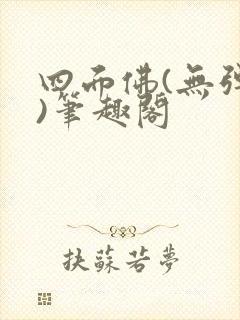 四面佛(無彈
)筆趣閣
扶蘇若夢